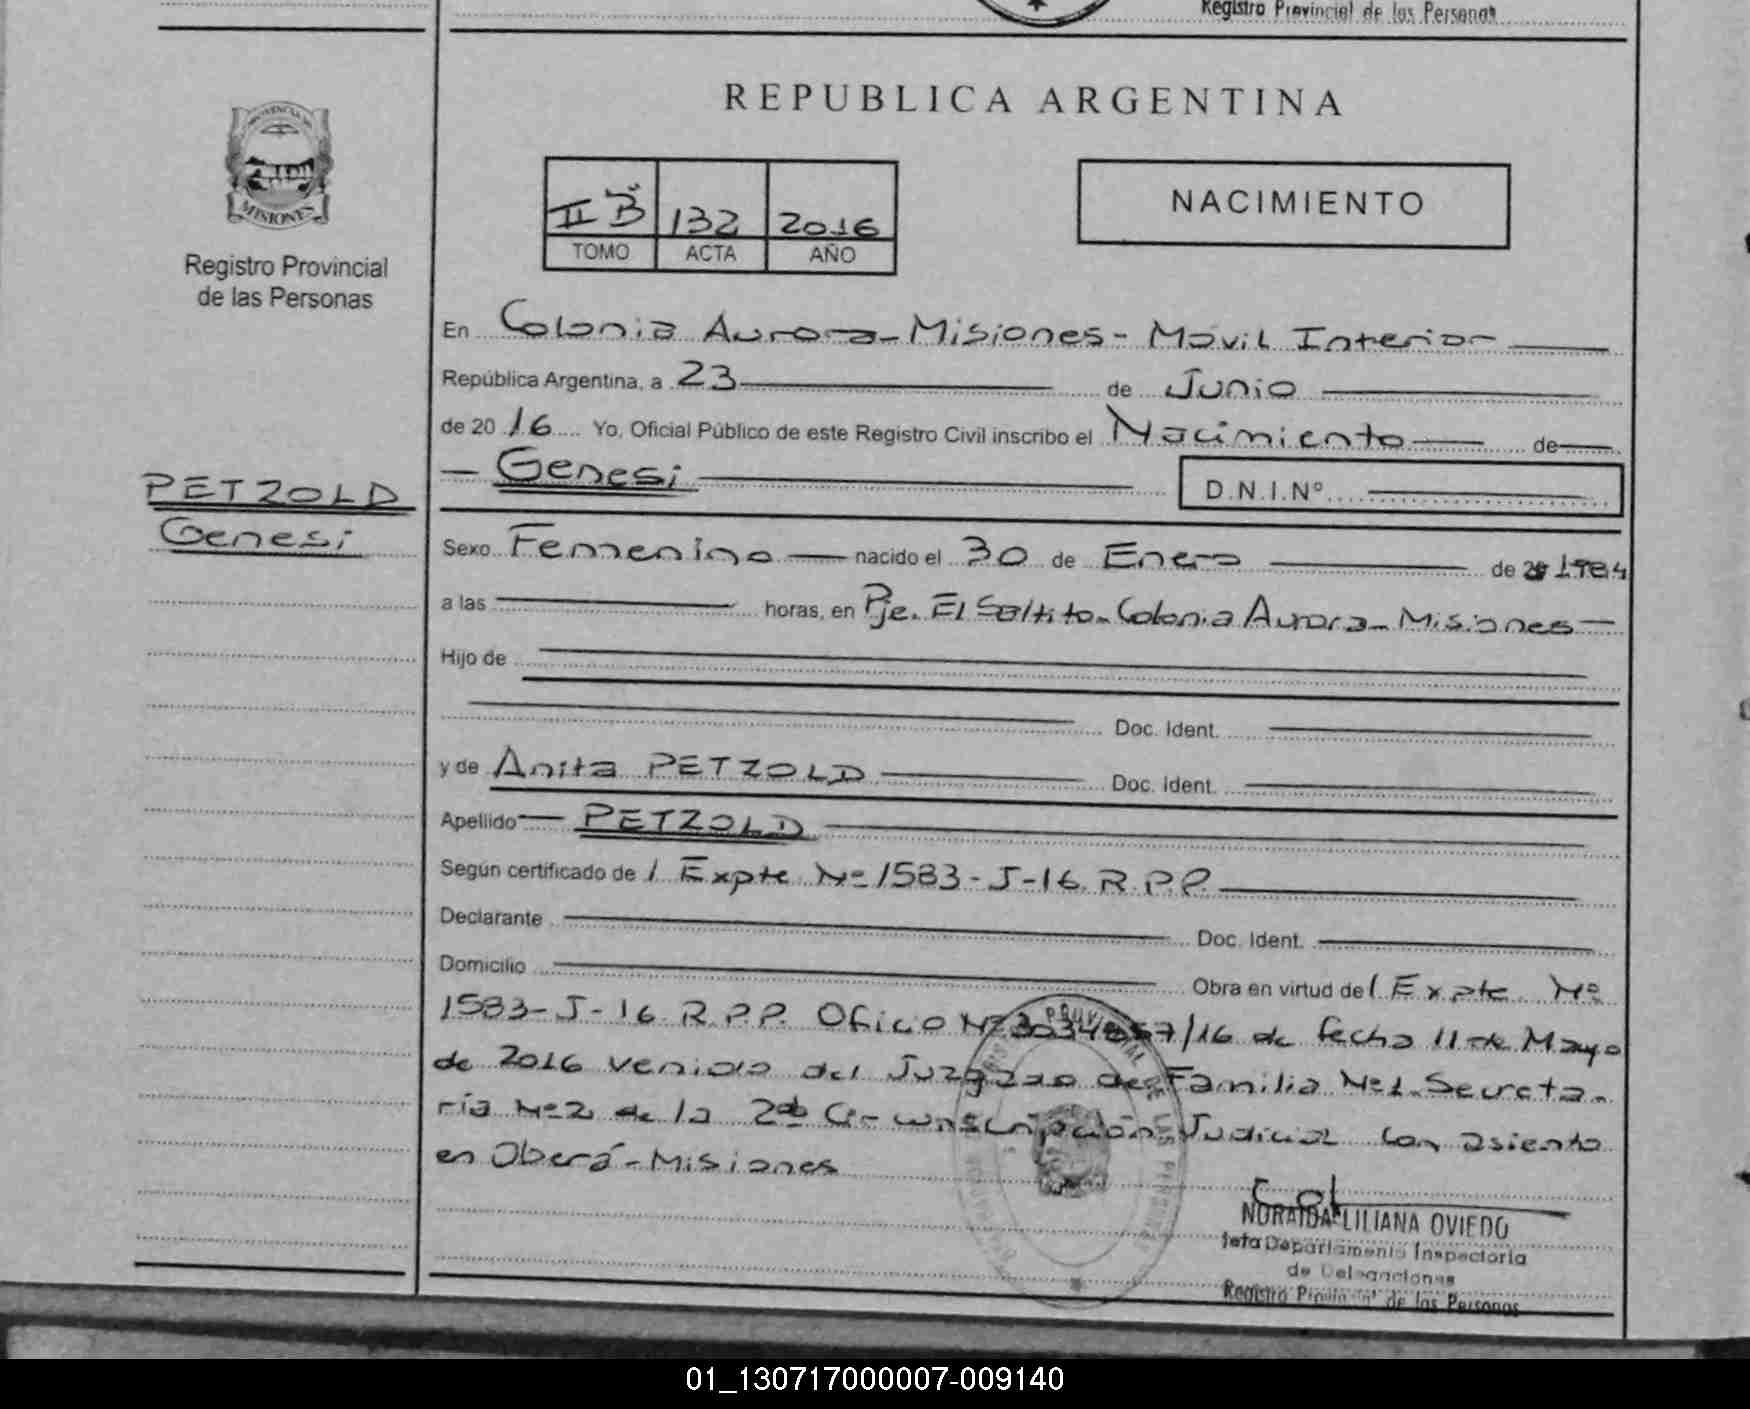 Registro Provincial de las Personas
REPUBLICA ARGENTINA
PROVINCIA DE
MISIONES
Registro Provincial
de las Personas
II B 132 2016
TOMO ACTA AÑO
NACIMIENTO
En Colonia Aurora - Misiones - Móvil Interior
República Argentina, a 23 de Junio
de 2016 Yo, Oficial Público de este Registro Civil inscribo el Nacimiento de
Genesi D.N.I.Nº
PETZOLD
Genesi
Sexo Femenino nacido el 30 de Enero de 1984
a las horas, en Pje. El Saltito - Colonia Aurora - Misiones
Hijo de
Doc. Ident.
y de Anita PETZOLD Doc. Ident.
Apellido PETZOLD
Según certificado de / Expte Nº 1583-J-16 R.P.P.
Declarante Doc. Ident.
Domicilio Obra en virtud de / Expte Nº
1583-J-16 R.P.P. Oficio Nº /16 de fecha 11 de Mayo
de 2016 venido del Juzgado de Familia Nº1 - Secreta-
ría Nº2 de la 2da Circunscripción Judicial con asiento
en Oberá - Misiones
NORAIDA LILIANA OVIEDO
Jefa Departamento Inspectoria
de Delegaciones
Registro Provincial de las Personas
01_130717000007-009140